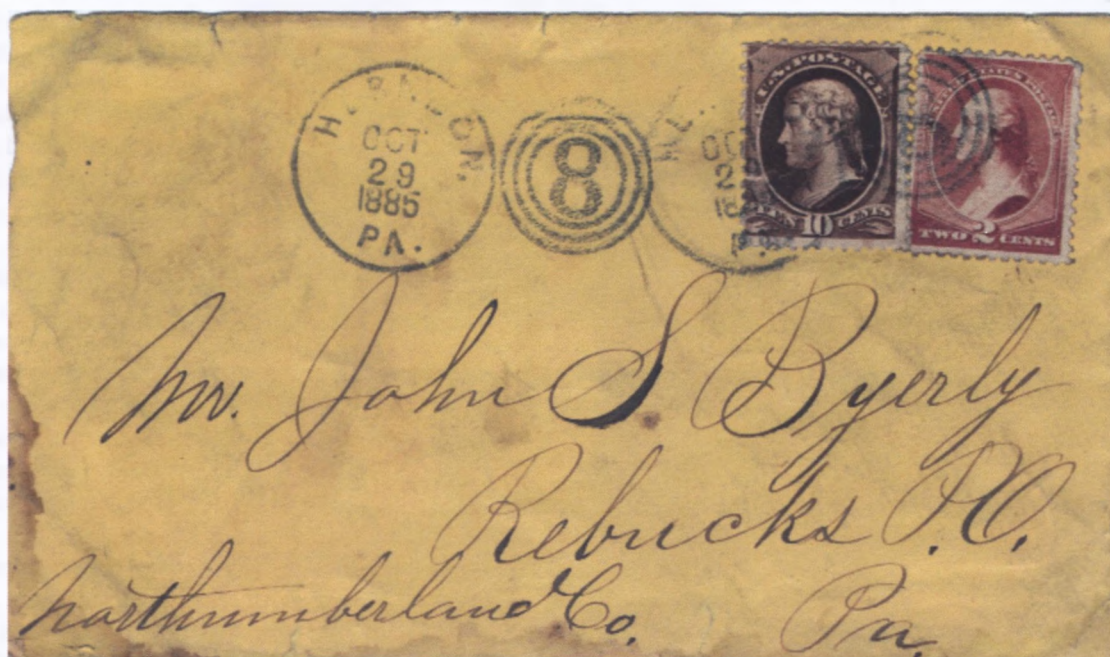 HERNDON,
OCT
29
1885
PA.
8
OCT
U.S. POSTAGE
TEN 10 CENTS
TWO 2 CENTS
Mr. John S Byerly
Rebucks P.O.
Northumberland Co. Pa.